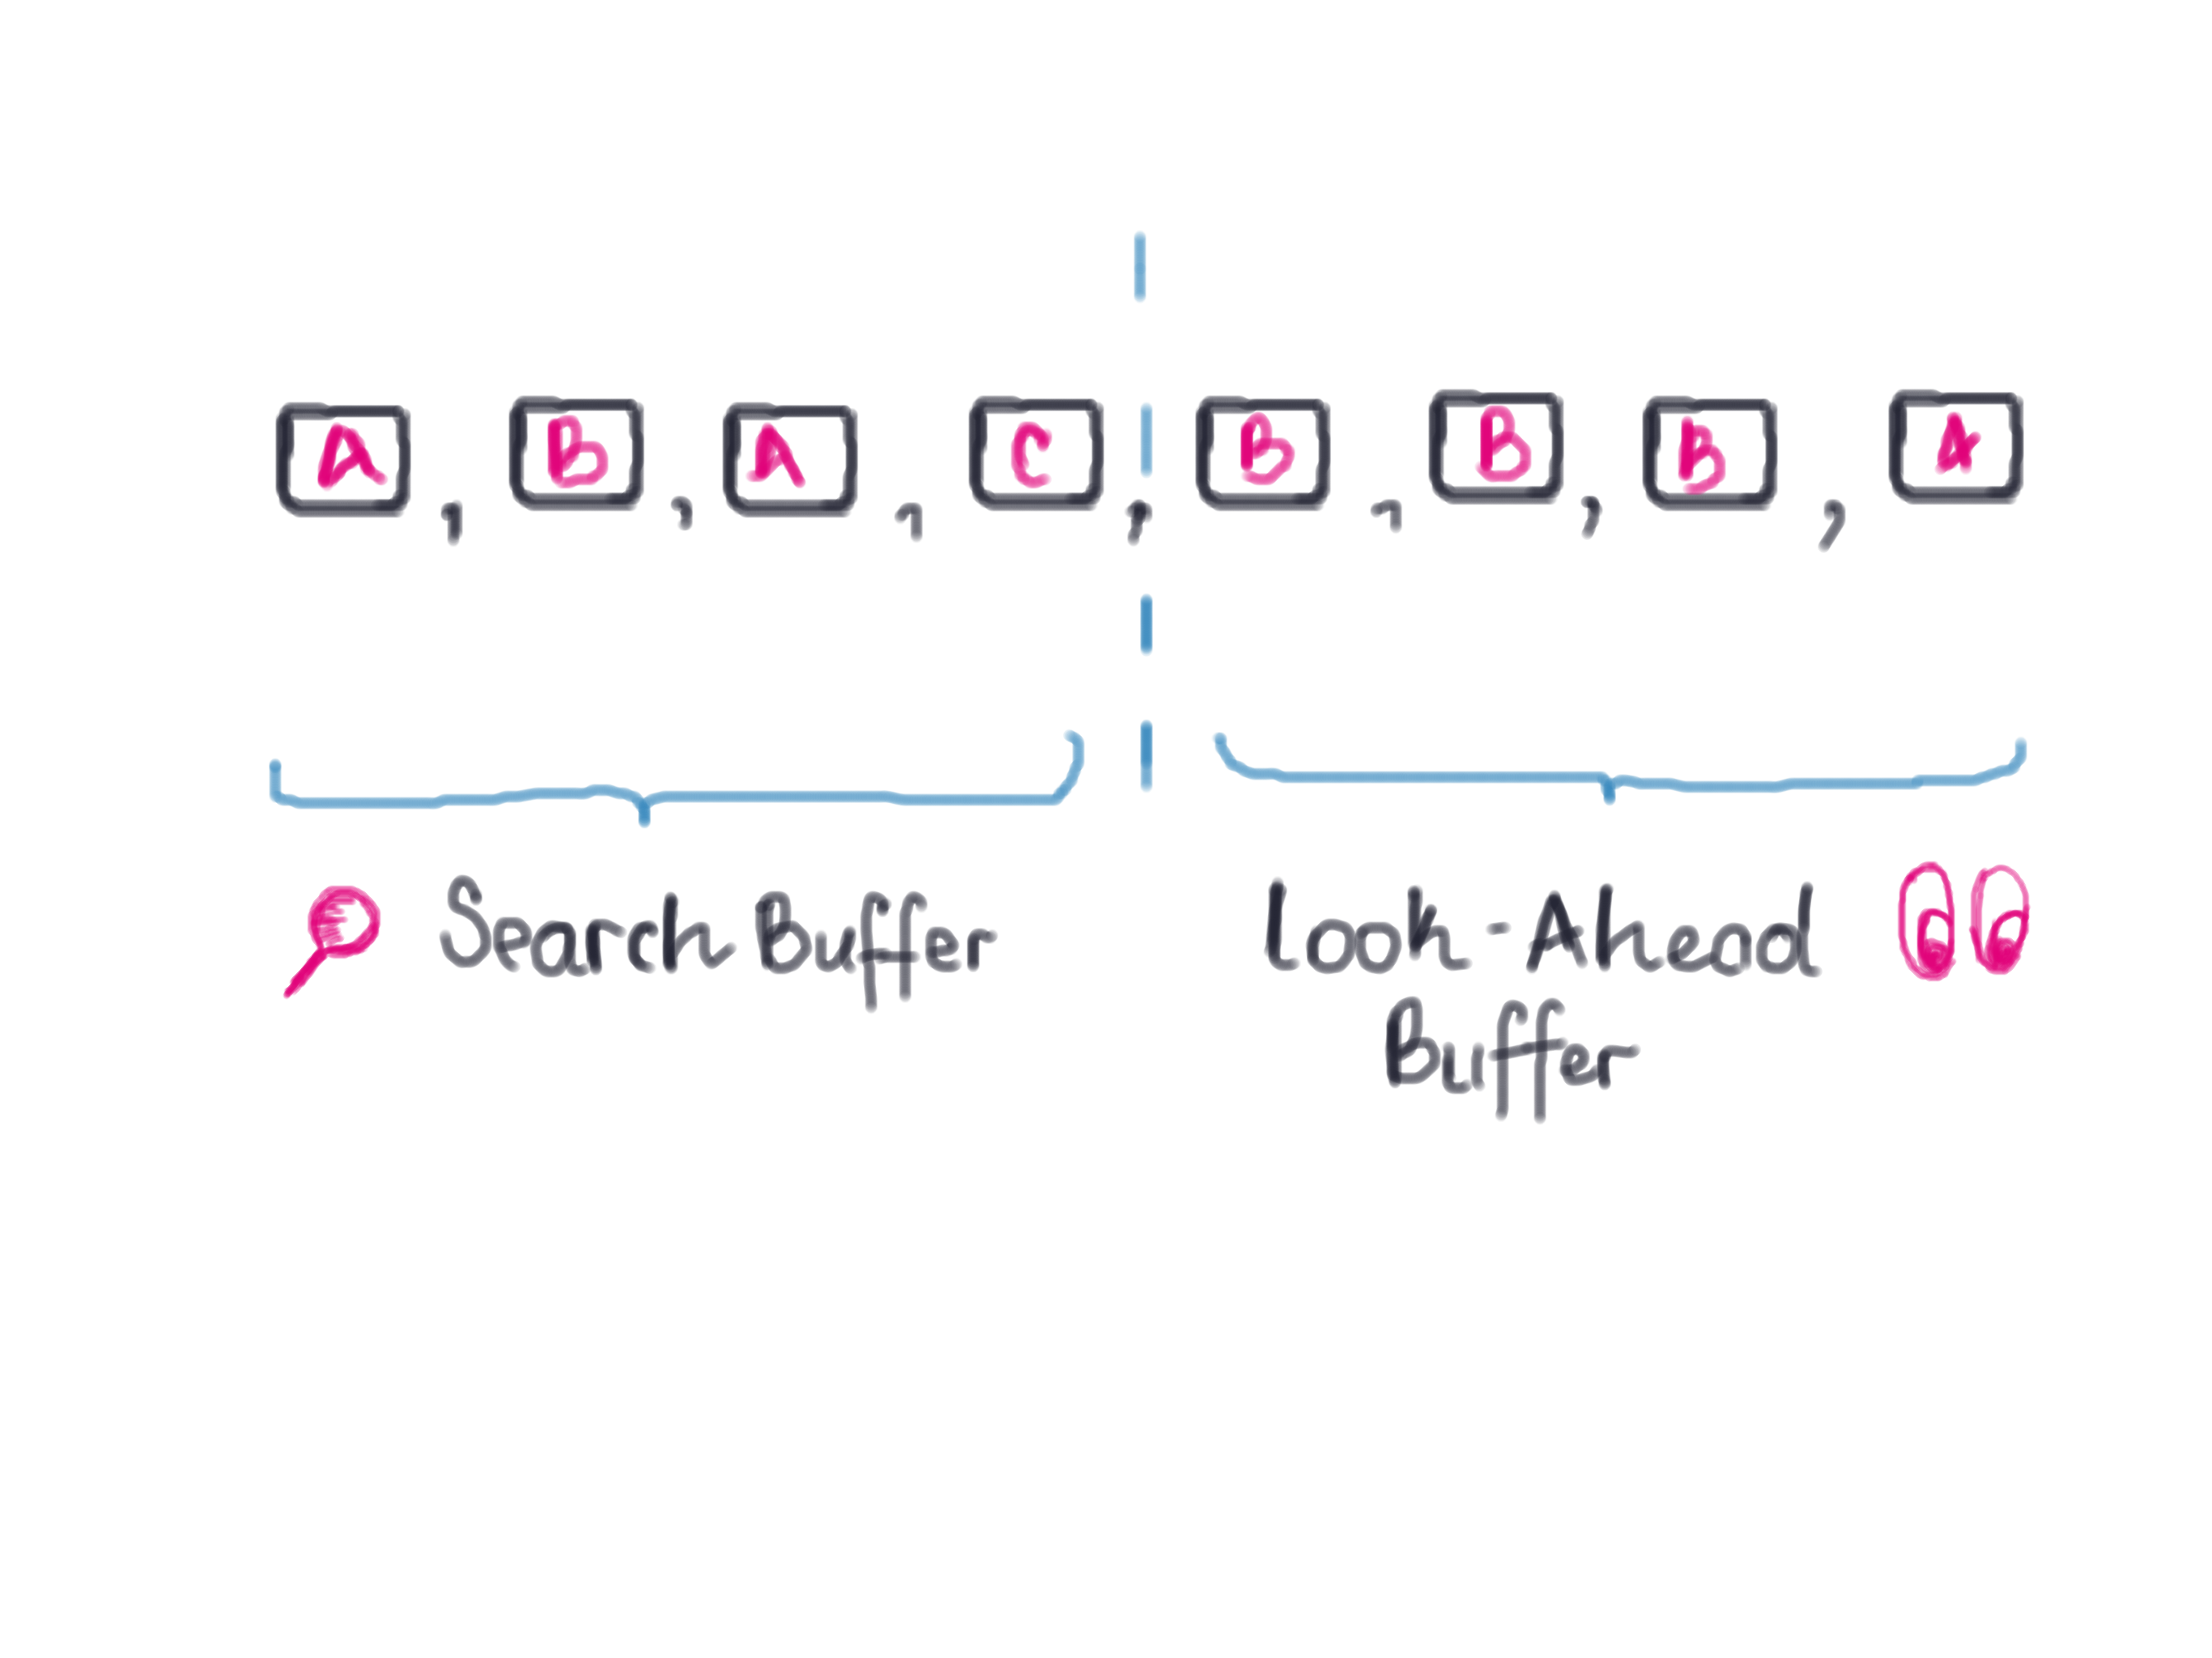 A, B, A, C, B, B, B, A
Search Buffer
Look-Ahead
Buffer